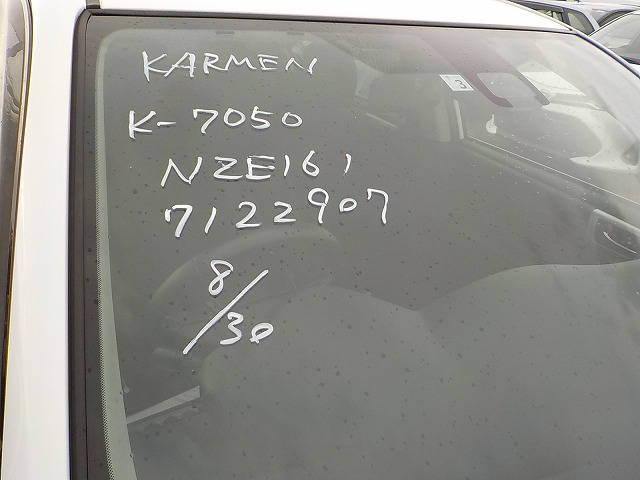 KARMEN
3
K-7050
NZE161
7122907
8/30